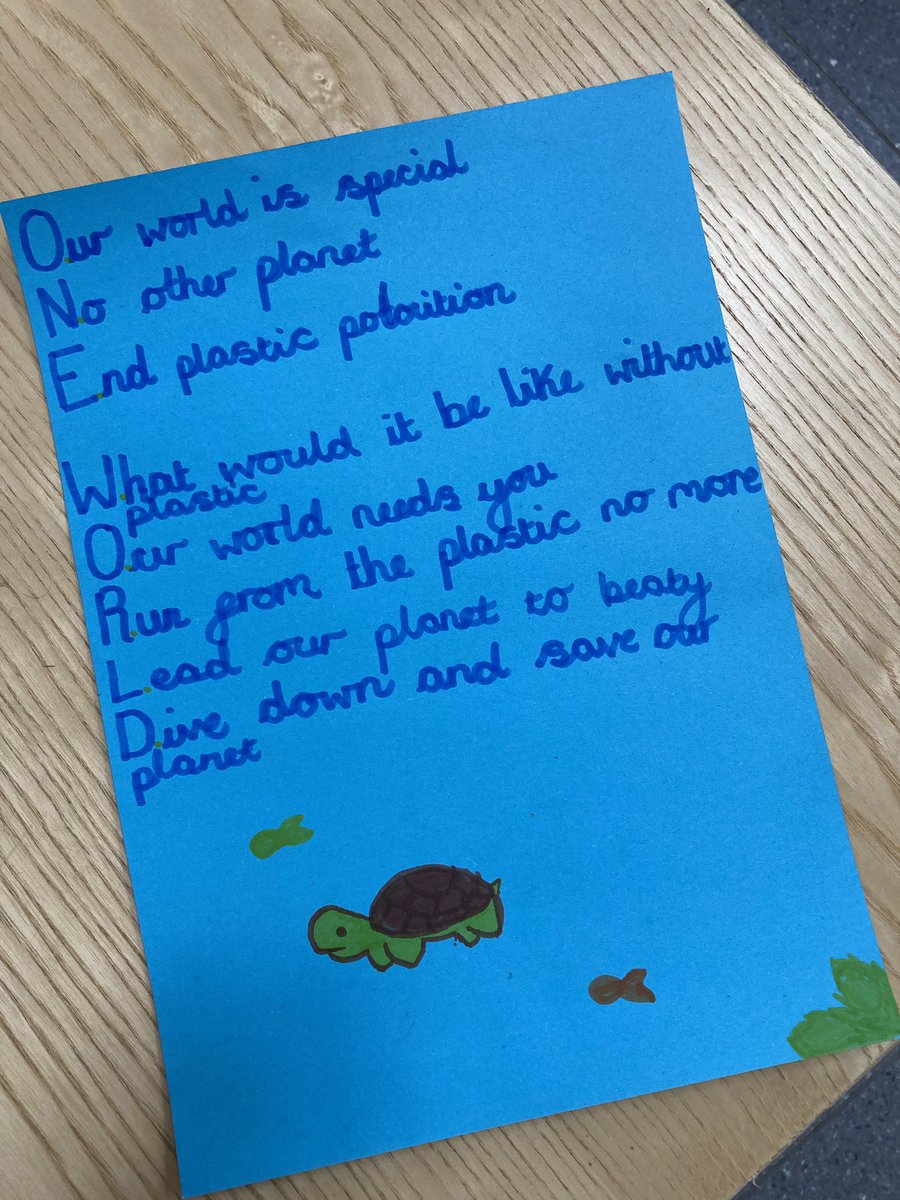 Our world is special
No other planet
End plastic polorition
What would it be like without
plastic
Our world needs you
Run from the plastic no more
Lead our planet to beaty
Dive down and save our
planet